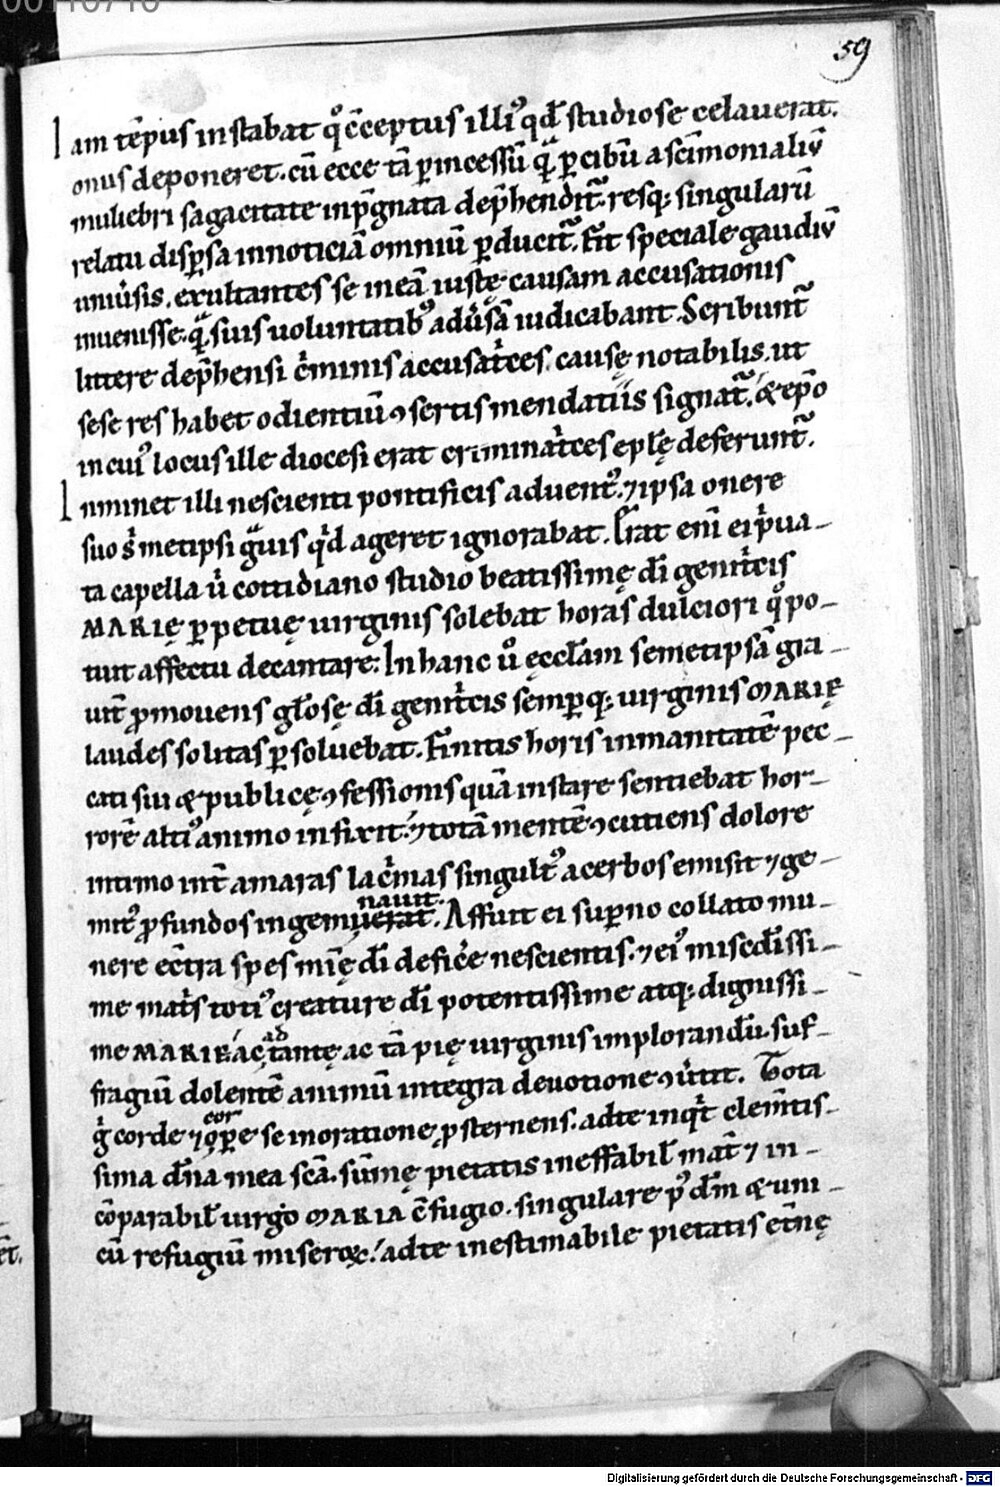 59
Iam tēpus instabat qͦ cēceptus illiꝰ qđ studiose celauerat.
onus deponeret. cū ecce tā ꝑ incessū qᷓ ꝑ cibū a sc̄imonialiꝰ
muliebri sagacitate inp̄gnata dep̄henditᷓ. resq; singularū
relatu disꝑsa in noticiā omniū ꝑducitᷓ. Fit speciale gaudiū
uniu̓sis. exultantes se in eā iustę causam accusationis
inuenisse. qᷓ suis uoluntatibꝰ adu̓sā iudicabant. Scribuntᷓ
littere dep̄hensi cͥminis accusatͥces. causę notabilis. ut
sese res habet odientiū ꝯsertis mendatiis signatᷓ. & ep̄o
in cuiꝰ locus ille diocesi erat criminatͥces ep̄lę deferuntᷓ.
Inminet illi nescienti pontificis aduentꝰ. ⁊ ipsa onere
suo s̓ metipsi gᷓuis qͥd ageret ignorabat. Erat eni̅ ei pͥua-
ta capella u̓ cottidiano studio beatissimę dī genitͥcis
MARIĘ ꝑpetuę uirginis solebat horas dulciori qͦ po-
tuit affectu decantare. In hanc u̓o ęccl̄am semetipsā gra-
uit̓ ꝓmouens gl̄osę dī genitͥcis semꝑq; uirginis MARIĘ
laudes solitas ꝑsoluebat. Finitis horis inmanitatē pec-
cati sui & publicę ꝯfessionis quā instare sentiebat hor-
rorē altiꝰ animo infixit. ⁊ totā mentē ꝯcutiens dolore
intimo int̓ amaras lacͥmas singultꝰ acerbos emisit ⁊ ge-
mitꝰ ꝓfundos ingeminauit. Affuit ei suꝑno collato mu-
nere ec̄tra spes mīę dī defice̓ nescientis. ⁊ eiꝰ miscd̄issi-
me matͥs totiꝰ creature dī potentissime atq; dignissi-
me MARIE ac tantę ac tā pię uirginis ad implorandū suf-
fragiū dolentē animū integra deuotione ꝯu̓tit. Tota
g̓ corde ⁊ corꝑe se in oratione ꝓsternens. ad te inqͥt clem̄tis-
sima dn̄a mea sc̄a. sūmę pietatis ineffabil̓ mat̓ ⁊ in-
cōparabil̓ uirgo MARIA cōfugio. singulare pꝰ dm̄ & uni-
cū refugiū miseroꝝ. ad te inestimabile pietatis et̓nę